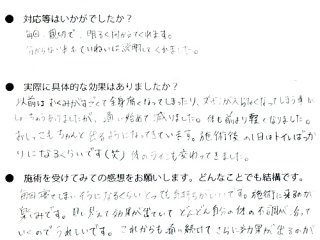 ● 対応等はいかがでしたか？
毎回、親切で、明るく向かえてくれます。
分からない事もていねいに説明してくれました。
● 実際に具体的な効果はありましたか？
以前はむくみがすごくて全身痛くなってしまったり、ズボンが入らなくなってしまう事が
しょっちゅうありましたが、通い始めて減りました。体も前より軽くなりました。
おしっこもちゃんと出るようになってきています。施術後の1日はトイレばっか
りになるくらいです(笑) 体のラインも変わってきました。
● 施術を受けてみての感想をお願いします。どんなことでも結構です。
毎回寝てしまいそうになるくらいとっても気持ちがいいです。施術に来るのが
楽しみです。目に見えて効果が出ていて どんどん自分の体の不調が治って
いくのでうれしいです。これからも通い続けて さらに効果が出るのが